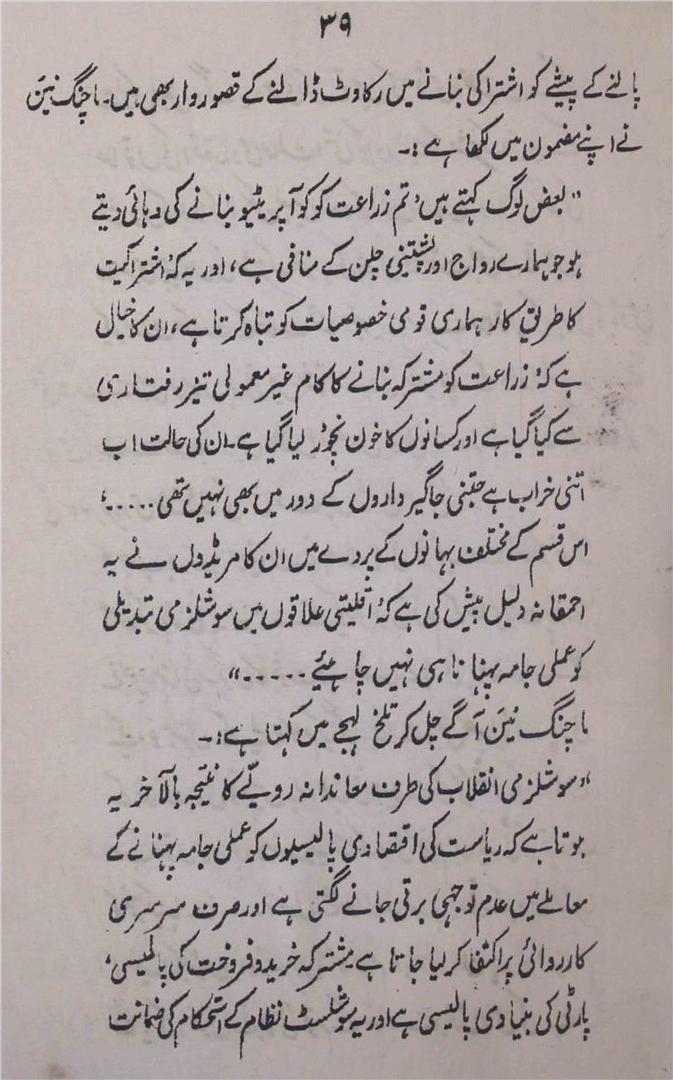 ۳۹
پالنے کے پیشے کو اشتراکی بنانے میں رکاوٹ ڈالنے کے قصوروار بھی ہیں۔ ماچنگ نین
نے اپنے مضمون میں لکھا ہے :۔
"بعض لوگ کہتے ہیں' تم زراعت کو کوآپریٹیو بنانے کی دہائی دیتے
ہو جو ہمارے رواج اور پشتینی چلن کے منافی ہے، اور یہ کہ اشتراکیت
کا طریقِ کار ہماری قومی خصوصیات کو تباہ کرتا ہے، ان کا خیال
ہے کہ زراعت کو مشترکہ بنانے کا کام غیر معمولی تیز رفتاری
سے کیا گیا ہے اور کسانوں کا خون نچوڑ لیا گیا ہے۔ ان کی حالت اب
اتنی خراب ہے جتنی جاگیرداروں کے دور میں بھی نہیں تھی .....'
اس قسم کے مختلف بہانوں کے پردے میں ان کامریڈوں نے یہ
احمقانہ دلیل پیش کی ہے کہ اقلیتی علاقوں میں سوشلزمی تبدیلی
کو عملی جامہ پہنانا ہی نہیں چاہئیے ....."
ماچنگ نین آگے چل کر تلخ لہجے میں کہتا ہے :۔
"سوشلزمی انقلاب کی طرف معاندانہ رویّے کا نتیجہ بالآخر یہ
ہوتا ہے کہ ریاست کی اقتصادی پالیسیوں کو عملی جامہ پہنانے کے
معاملے میں عدم توجہی برتی جانے لگتی ہے اور صرف سرسری
کارروائی پر اکتفا کر لیا جاتا ہے مشترکہ خرید و فروخت کی پالیسی،
پارٹی کی بنیادی پالیسی ہے اور یہ سوشلسٹ نظام کے استحکام کی ضمانت